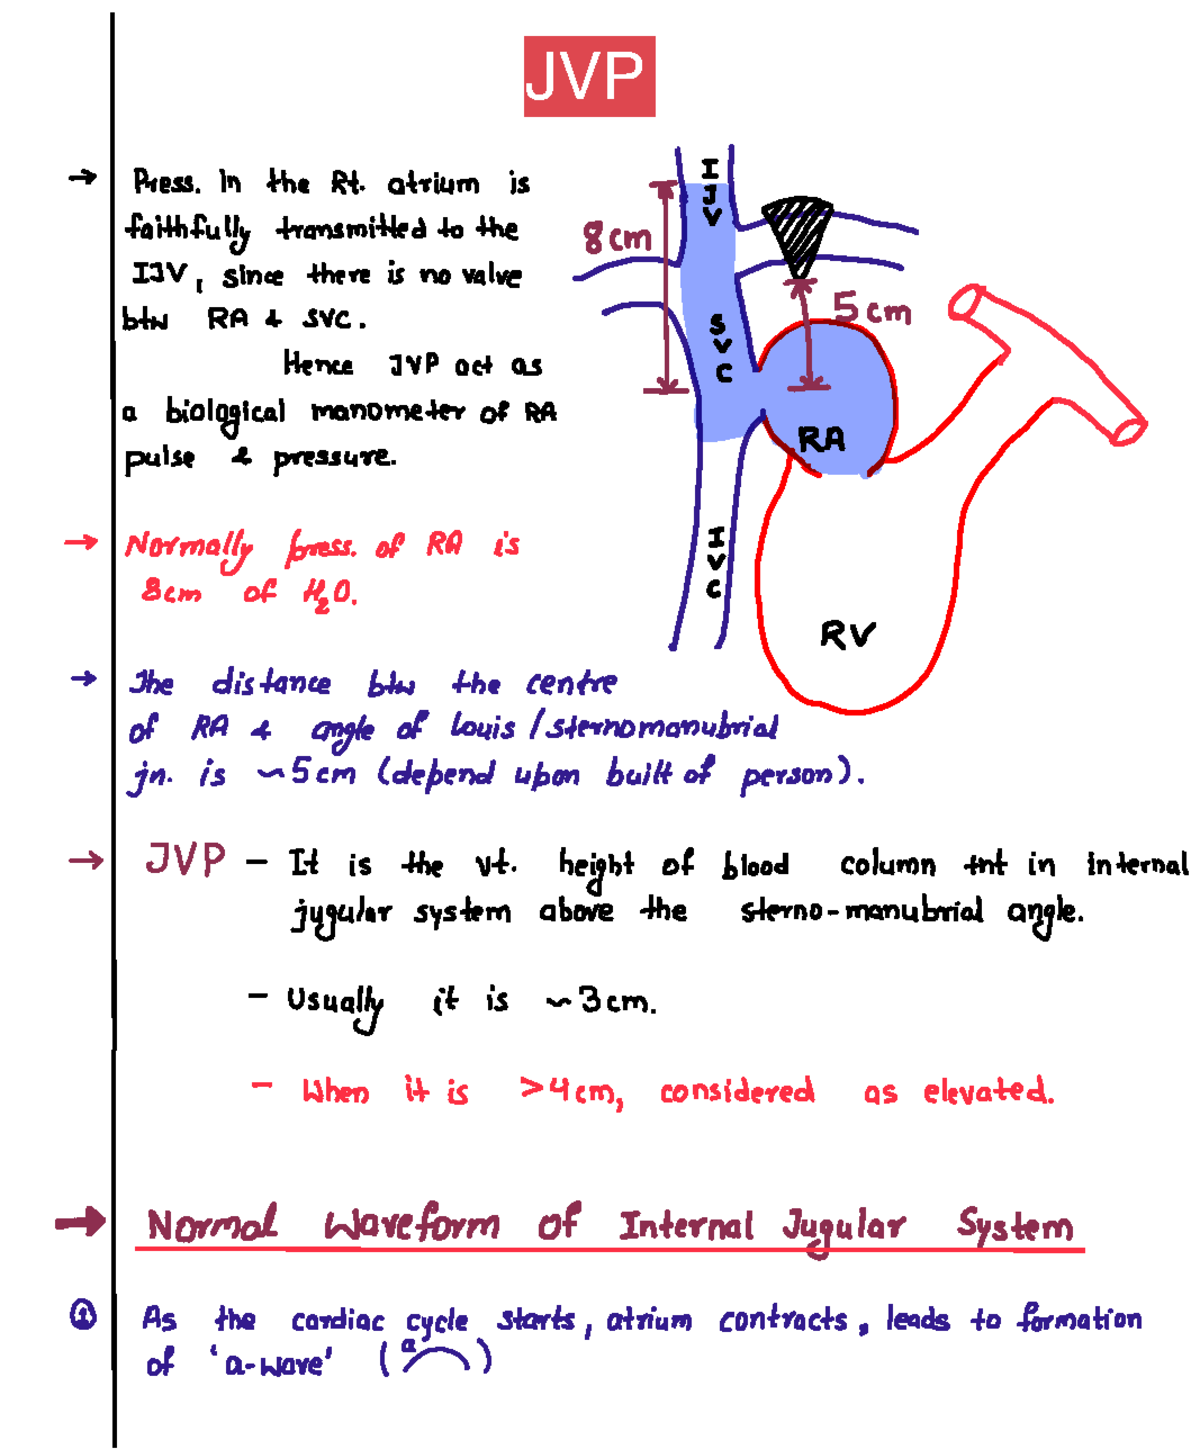 JVP
→ Press. In the Rt. atrium is
faithfully transmitted to the
IJV, since there is no valve
btw RA & SVC.
Hence JVP act as
a biological manometer of RA
pulse & pressure.
IJV
8cm
5cm
SVC
RA
IVC
RV
→ Normally press. of RA is
8cm of H₂O.
→ The distance btw the centre
of RA & angle of Louis / sternomanubrial
jn. is ~5cm (depend upon built of person).
→ JVP – It is the vt. height of blood column tnt in internal
jugular system above the sterno-manubrial angle.
– Usually it is ~3cm.
– When it is >4cm, considered as elevated.
→ Normal Waveform of Internal Jugular System
① As the cardiac cycle starts, atrium contracts, leads to formation
of 'a-wave' ( a )